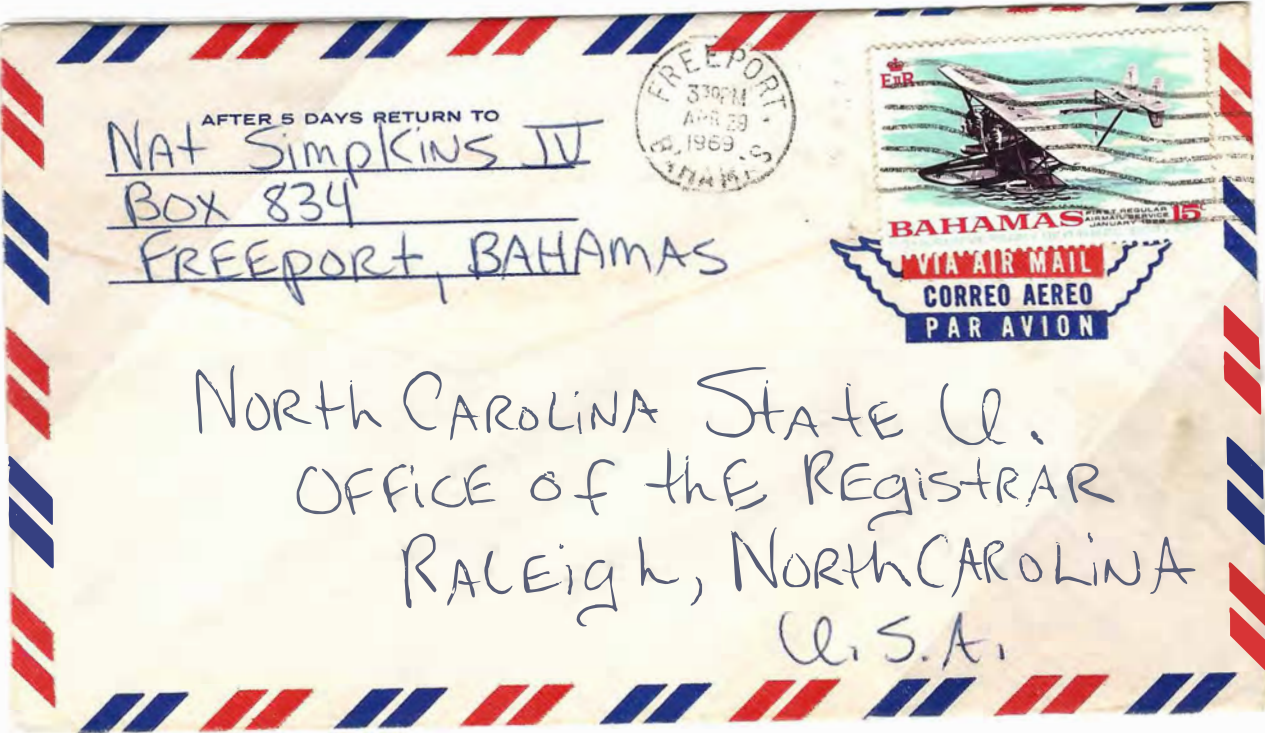 AFTER 5 DAYS RETURN TO
NAt SimpKiNS IV
BOX 834
FREEPORt, BAHAMAS
FREEPORT.
330PM
APR 29
1969
BAHAMAS
EIIR
BAHAMAS FIRST REGULAR AIRMAIL SERVICE JANUARY 1929 15c
VIA AIR MAIL
CORREO AEREO
PAR AVION
NORth CAROLiNA StAtE U.
OFFiCE of thE REgistRAR
RALEigh, NORth CAROLiNA
U.S.A.